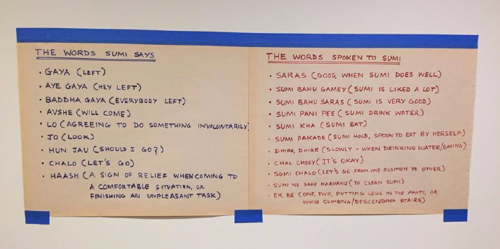 THE WORDS SUMI SAYS
• GAYA (LEFT)
• AYE GAYA (HEY LEFT)
• BADDHA GAYA (EVERYBODY LEFT)
• AVSHE (WILL COME)
• LO (AGREEING TO DO SOMETHING INVOLUNTARILY)
• JO (LOOK)
• HUN JAU (SHOULD I GO?)
• CHALO (LET'S GO)
• HAASH (A SIGN OF RELIEF WHEN COMING TO
A COMFORTABLE SITUATION, OR
FINISHING AN UNPLEASANT TASK)
THE WORDS SPOKEN TO SUMI
• SARAS (GOOD, WHEN SUMI DOES WELL)
• SUMI BAHU GAMEY (SUMI IS LIKED A LOT)
• SUMI BAHU SARAS (SUMI IS VERY GOOD)
• SUMI PANI PEE (SUMI DRINK WATER)
• SUMI KHA (SUMI EAT)
• SUMI PAKADE (SUMI HOLD, SPOON TO EAT BY HERSELF)
• DHIRE, DHIRE (SLOWLY - WHEN DRINKING WATER/EATING)
• CHAL CHOEY (IT'S OKAY)
• SUMI CHALO (LET'S GO FROM ONE POSITION TO OTHER)
• SUMI NE SAAF KARVANU (TO CLEAN SUMI)
• EK, BE (ONE, TWO, PUTTING LEGS IN THE PANTS, OR
WHILE CLIMBING/DESCENDING STAIRS)